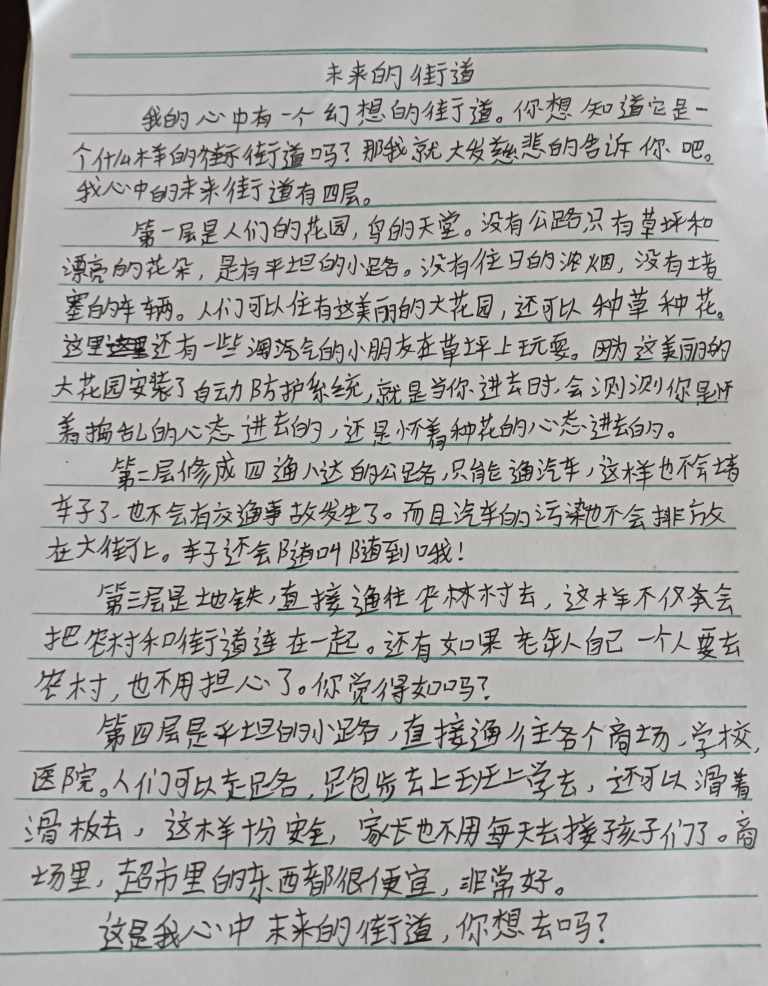 未来的街道
我的心中有一个幻想的街道。你想知道它是一
个什么样的街道吗?那我就大发慈悲的告诉你吧。
我心中的未来街道有四层。
第一层是人们的花园,鸟的天堂。没有公路只有草坪和
漂亮的花朵,是有平坦的小路。没有往日的浓烟,没有堵
塞的车辆。人们可以住有这美丽的大花园,还可以种草种花。
这里还有一些淘气的小朋友在草坪上玩耍。因为这美丽的
大花园安装了自动防护系统,就是当你进去时,会测测你是怀
着捣乱的心态进去的,还是怀着种花的心态进去的。
第二层修成四通八达的公路,只能通汽车,这样也不会堵
车子了、也不会有交通事故发生了。而且汽车的污染也不会排放
在大街上。车子还会随叫随到哦!
第三层是地铁,直接通往农林村去,这样不仅会
把农村和街道连在一起。还有如果老年人自己一个人要去
农村,也不用担心了。你觉得如吗?
第四层是平坦的小路,直接通往各个商场、学校,
医院。人们可以走路,跑步去上班上学去,还可以滑着
滑板去,这样十份安全,家长也不用每天去接子孩子们了。商
场里,超市里的东西都很便宜,非常好。
这是我心中未来的街道,你想去吗?